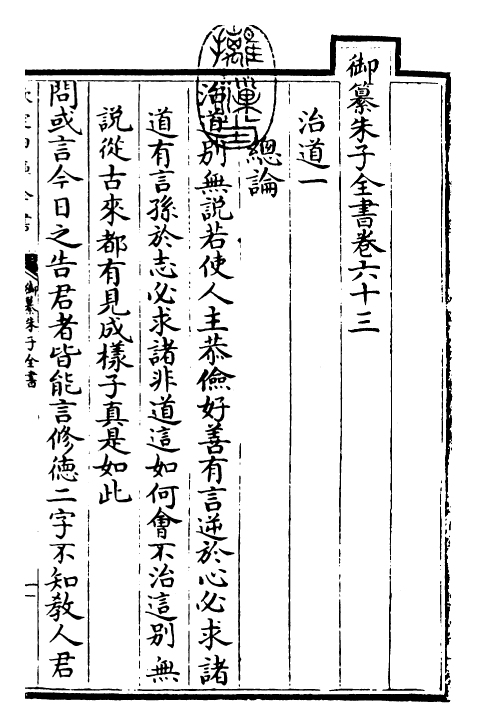 御纂朱子全書卷六十三
治道一
總論
治道別無說若使人主恭儉好善有言逆於心必求諸
道有言孫於志必求諸非道這如何會不治這別無
說從古來都有見成樣子真是如此
問或言今日之告君者皆能言修徳二字不知教人君
御纂朱子全書
一